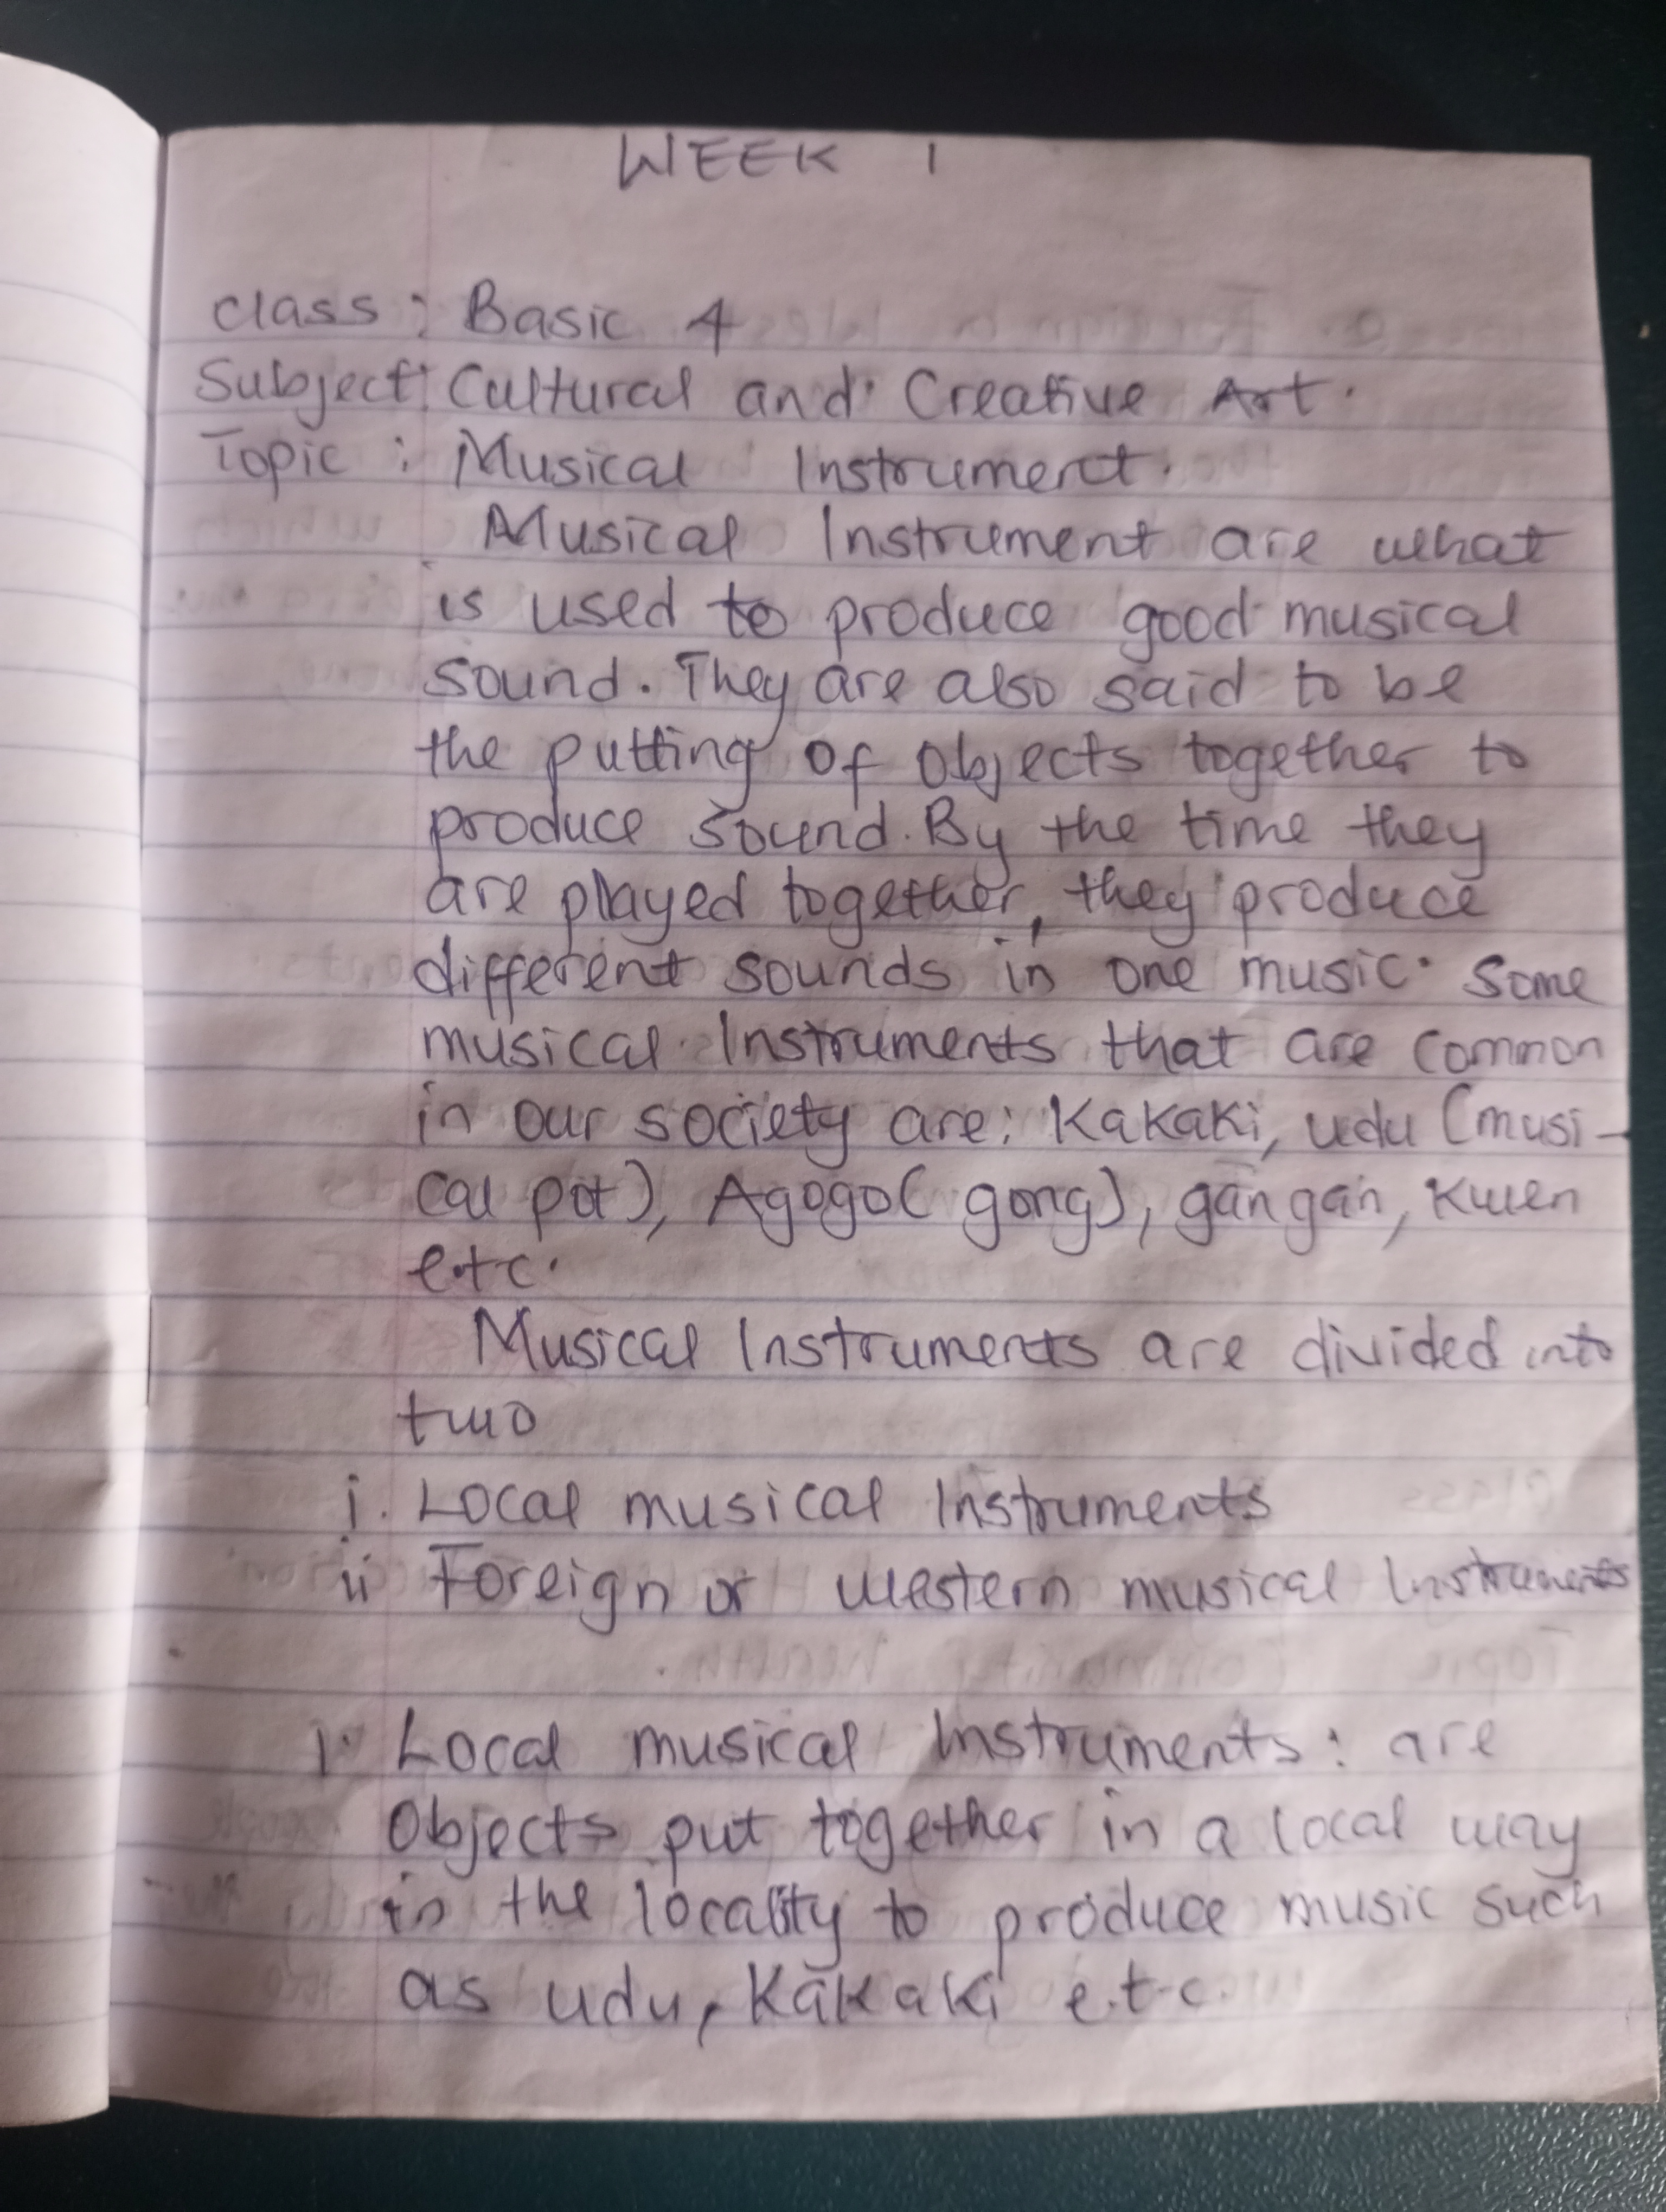 WEEK 1
Class : Basic 4
Subject : Cultural and Creative Art.
Topic : Musical Instrument.
Musical Instrument are what
is used to produce good musical
sound. They are also said to be
the putting of objects together to
produce sound. By the time they
are played together, they produce
different sounds in one music. Some
musical Instruments that are common
in our society are: Kakaki, udu (musi-
cal pot), Agogo( gong), gangan, Kwen
e.t.c.
Musical Instruments are divided into
two
i. Local musical Instruments
ii Foreign or western musical Instruments
1. Local musical Instruments : are
Objects put together in a local way
in the locality to produce music such
as udu, Kakaki e.t.c.